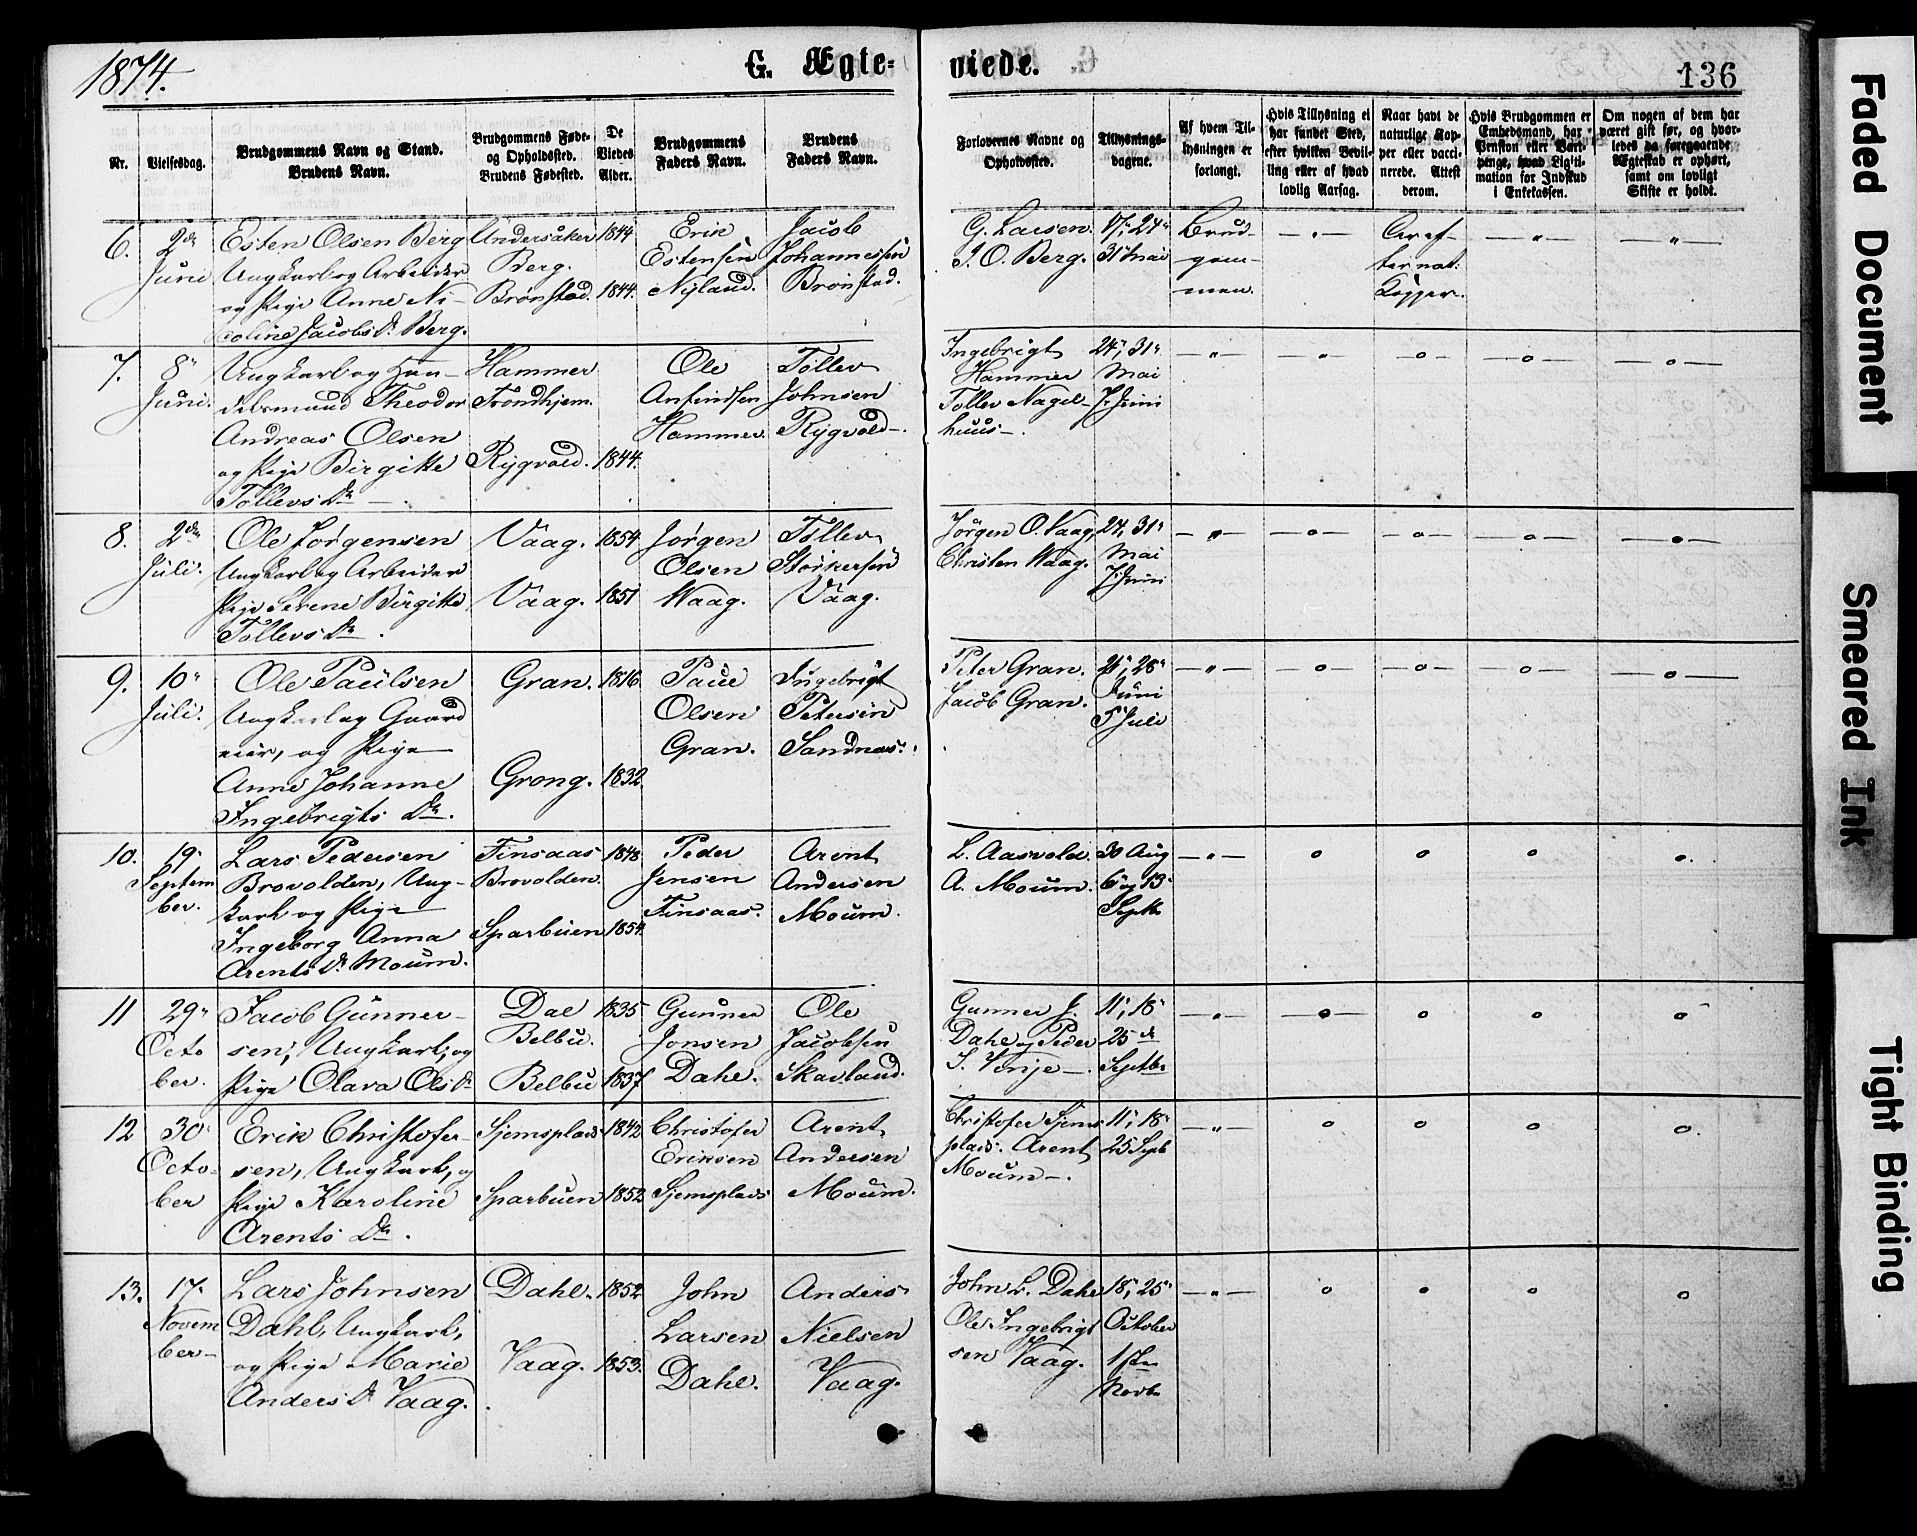 1874.
G. Ægte-
viede.
136
Nr.
Vielsesdag.
Brudgommens Navn og Stand.
Brudens Navn.
Brudgommens Føde-
og Opholdssted.
Brudens Fødested.
De
Viedes
Alder.
Brudgommens
Faders Navn.
Brudens
Faders Navn.
Forlovernes Navne og
Opholdssted.
Tillysnings-
dagene.
Af hvem Til-
lysningen er
forlangt.
Hvis Tillysning ei
har fundet Sted,
efter hvilken Bevil-
ling eller af hvad
lovlig Aarsag.
Naar havt de
naturlige Kop-
per eller vacci-
nerede. Attest
derom.
Hvis Brudgommen er
Embedsmand, har
Pension eller Vart-
penge, hvad Ligiti-
mation for Indskud
i Enkekassen.
Om nogen af dem har
været gift før, og hvor-
ledes da foregaaende
Ægteskab er ophørt,
samt om lovligt
Skifte er holdt.
6.
2den
Juni
Esten Olsen Berg
Ungkarl og Arbeider
og Pige Anne Ni-
coline Jacobs Dr Berg.
Undersåker
Berg.
Brønstad.
1844
1844.
Erik
Estensen
Nyland.
Jacob
Johannessen
Brønstad.
G. Larsen.
J. O. Berg.
17", 24"
31" Mai
Brud-
gom-
men.
7.
8"
Juni.
Ungkarl og Han-
delsmand Theodor
Andreas Olsen
og Pige Birgitte
Tollevs Dr.
Hammer
Trondhjem.
Rygvold.
1844.
Ole
Anfindsen
Hammer.
Tollev
Johnsen
Rygvold.
Ingebrigt
Hammer
Tollev Nagel-
huus.
24", 31"
Mai
7. Juni
8.
2den
Juli.
Ole Jørgensen
Ungkarl og Arbeider
Pige Serene Birgitte
Tollevs Dr.
Vaag.
Vaag.
1854
1851
Jørgen
Olsen
Waag.
Tollev
Storkersen
Vaag.
Jørgen O. Vaag.
Christen Waag.
24, 31"
Mai
7. Juni
9.
10"
Juli.
Ole Paulsen
Ungkarl og Gaard
eier, og Pige
Anne Johanne
Ingebrigts Dr.
Gran.
Grong.
1832.
Paul
Olsen
Gran.
Ingebrigt
Petersen
Sandnæs.
Peter Gran.
Jacob Gran.
21", 28"
Juni
5" Juli
10.
19"
Septem
ber.
Lars Pedersen
Brovolden, Ung-
karl og Pige
Ingeborg Anna
Arents Dr Moum.
Finsaas
Brovolden.
Sparbuen
1848
1854.
Peder
Jensen
Finsaas.
Arent
Andersen
Moum.
L. Aasvold.
A. Moum.
30 Aug
6 og 13
Septb
11
29"
Octo
ber.
Jacob Gunner-
sen, Ungkarl, og
Pige Olava Ols Dr
Dal
Belbu.
Belbu
1835
1837
Gunner
Jonsen
Dahl.
Ole
Jacobsen
Skavland.
Gunner J.
Dahl og Peder
11", 18"
25de
Septbr
12
30
Octo-
ber
Erik Christofer-
sen, Ungkarl, og
Pige Karoline
Arents Dr.
Sjemsplads
Sparbuen
1842
1852
Christofer
Eriksen
Sjemsplads
Arent
Andersen
Moum.
Christofer Sjems
plads. Arent
Moum.
11", 18"
25 Septb
13.
17.
Novem
ber
Lars Johnsen
Dahl, Ungkarl,
og Pige Marie
Anders Dr Vaag.
Dahl.
Vaag.
1852
1853.
John
Larsen
Dahl.
Anders
Nielsen
Vaag.
John L. Dahl
Ole Ingebrigt
sen Vaag.
18", 25"
October
1ste
Novbr
Faded Document
Smeared Ink
Tight Binding